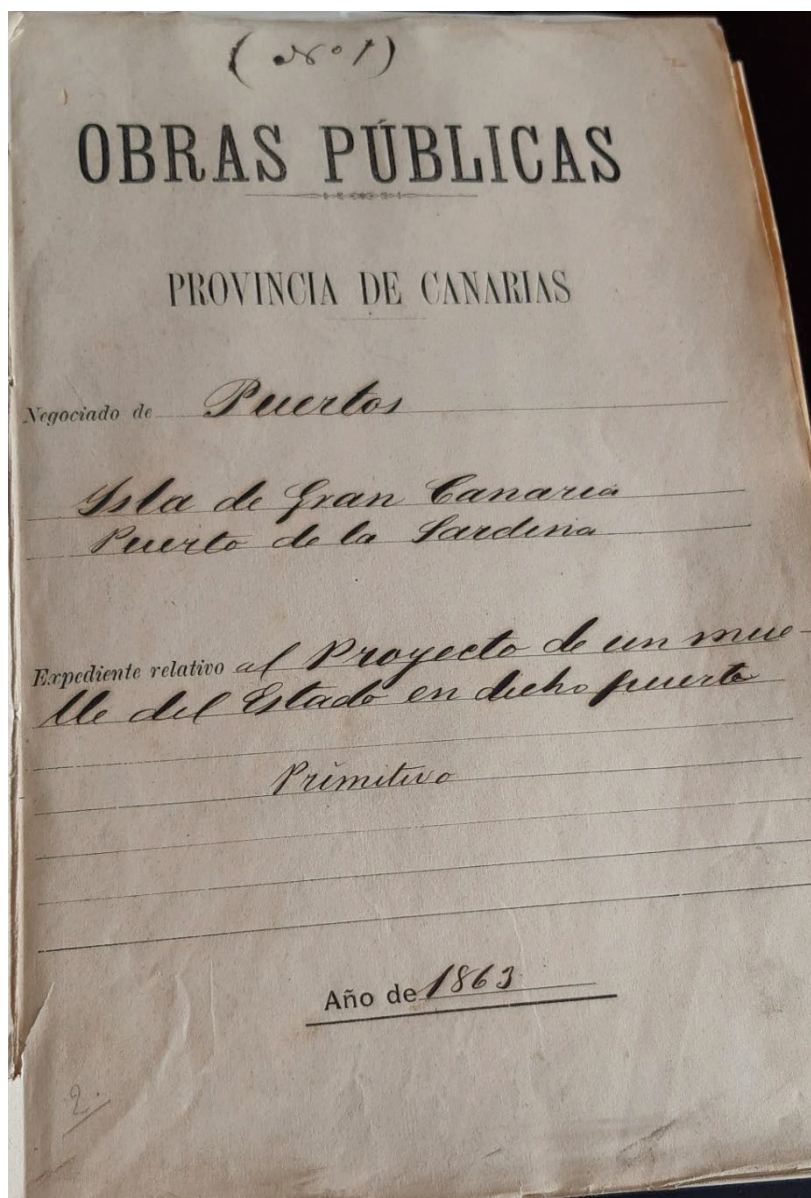 (Nº 1)
OBRAS PÚBLICAS
PROVINCIA DE CANARIAS
Negociado de Puertos
Ysla de Gran Canaria
Puerto de la Sardina
Expediente relativo al Proyecto de un mue-
lle del Estado en dicho puerto
Primitivo
Año de 1863
2.